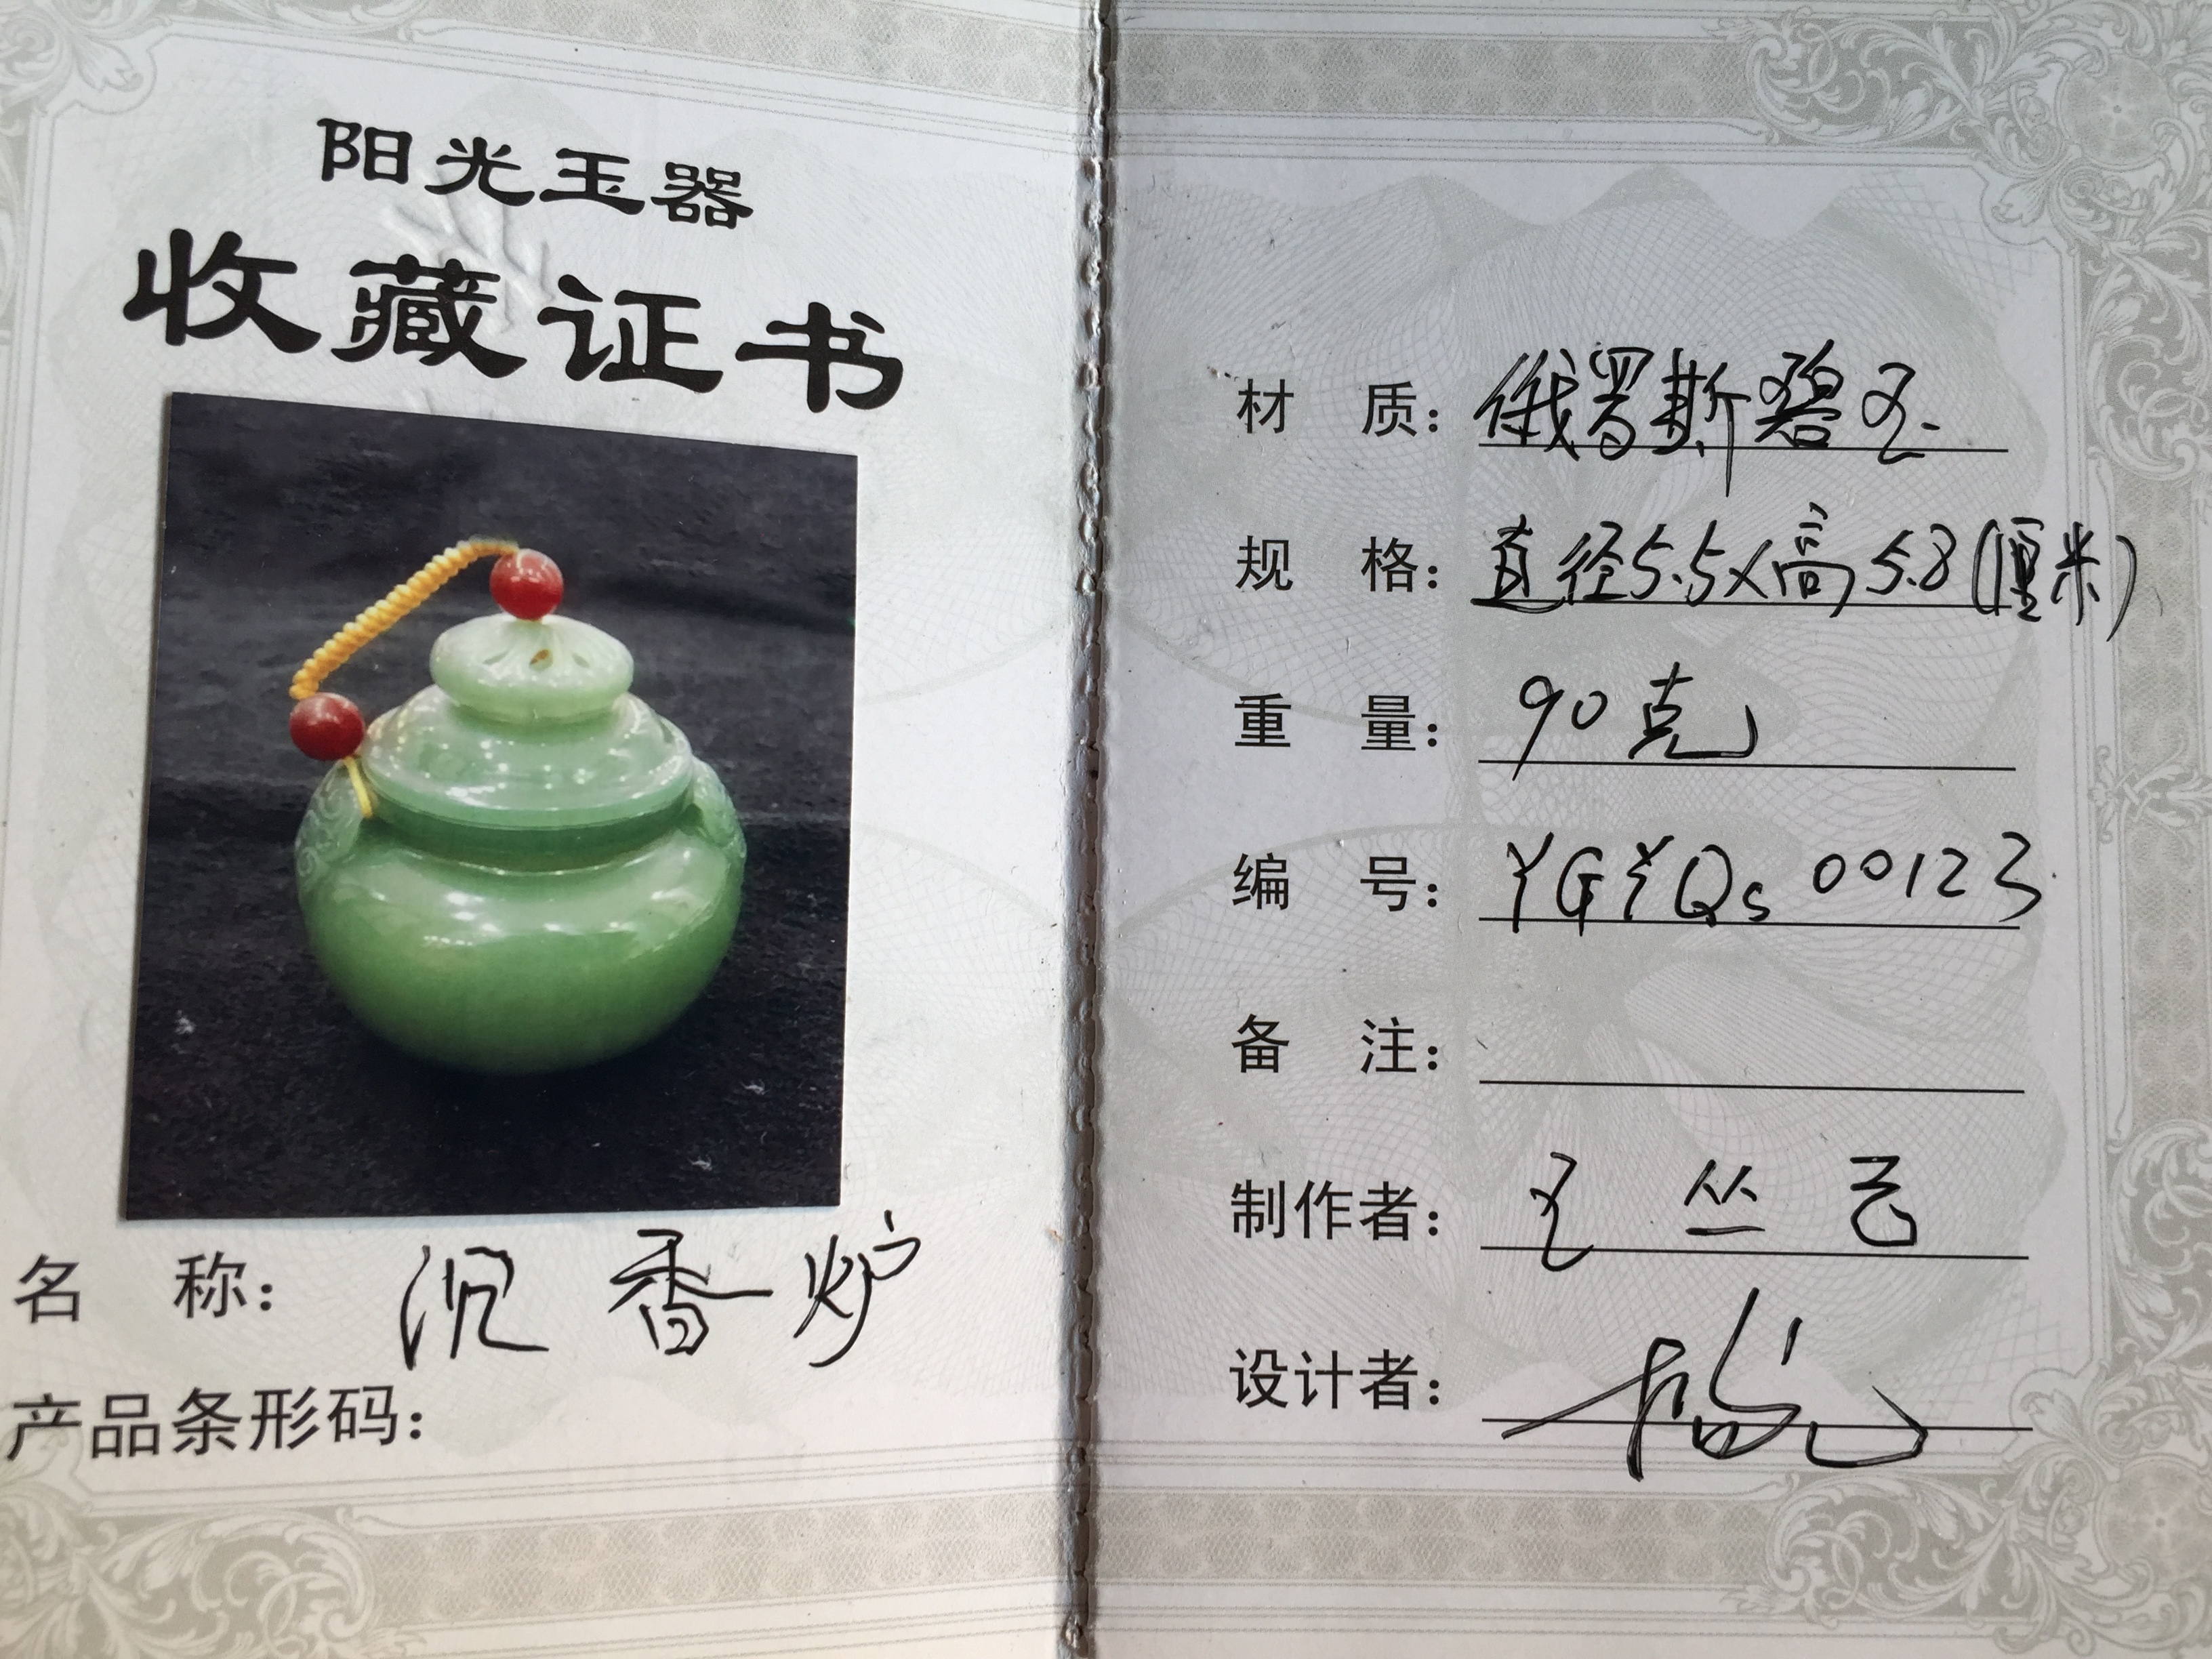 阳光玉器
收藏证书
名 称： 沉香炉
产品条形码：
材 质： 俄罗斯碧玉
规 格： 直径5.5×高5.8(厘米)
重 量： 90克
编 号： YGYQs 00123
备 注：
制作者：
设计者：